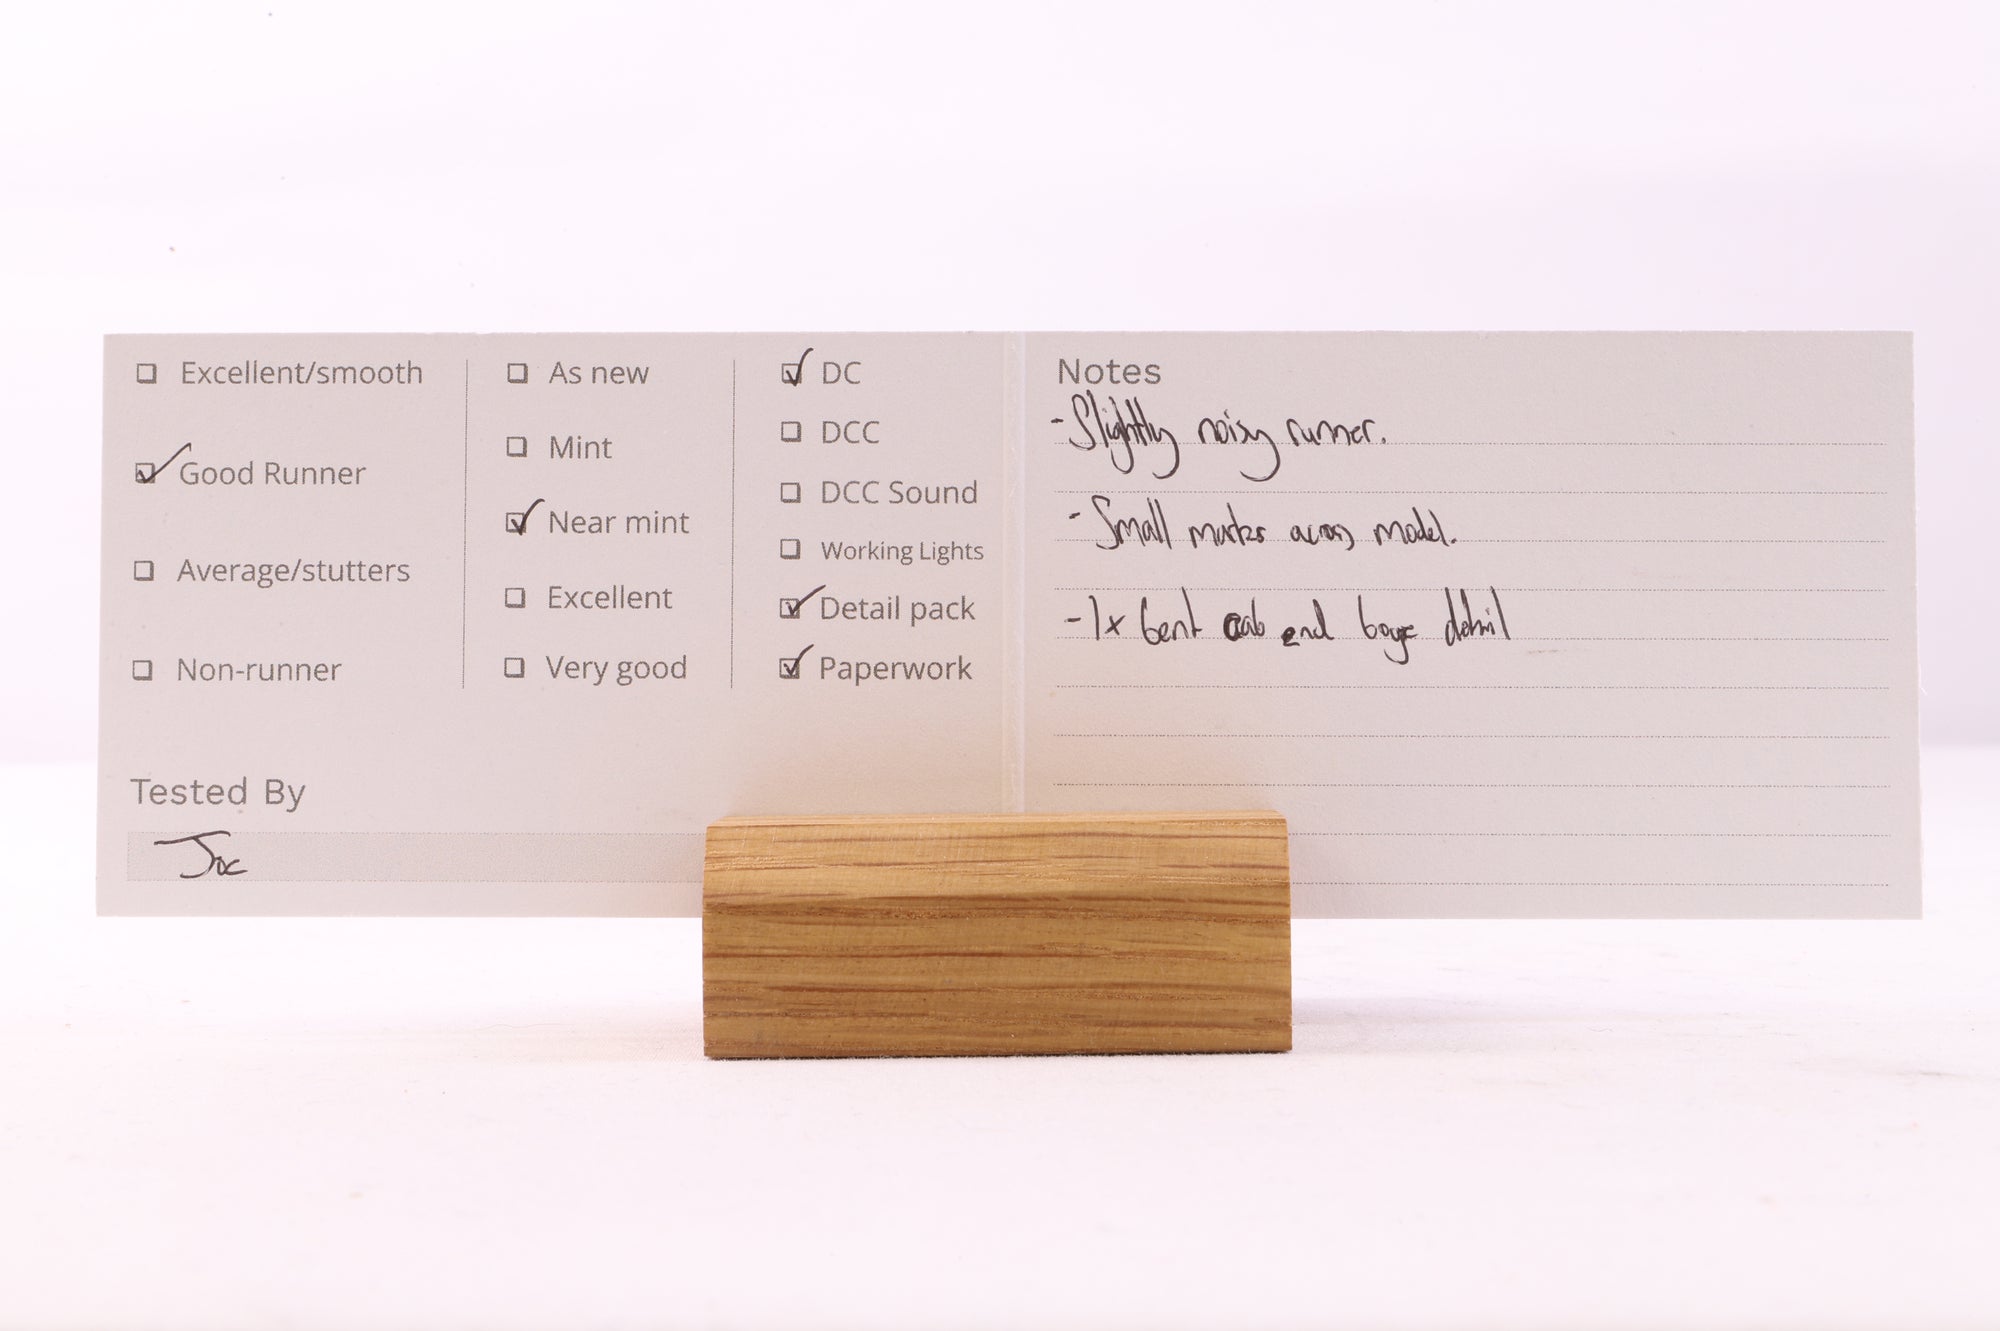 Excellent/smooth
Good Runner
Average/stutters
Non-runner
As new
Mint
Near mint
Excellent
Very good
DC
DCC
DCC Sound
Working Lights
Detail pack
Paperwork
Tested By
Joe
Notes
- Slightly noisy runner.
- Small marks across model.
- 1x bent cab end bogie detail